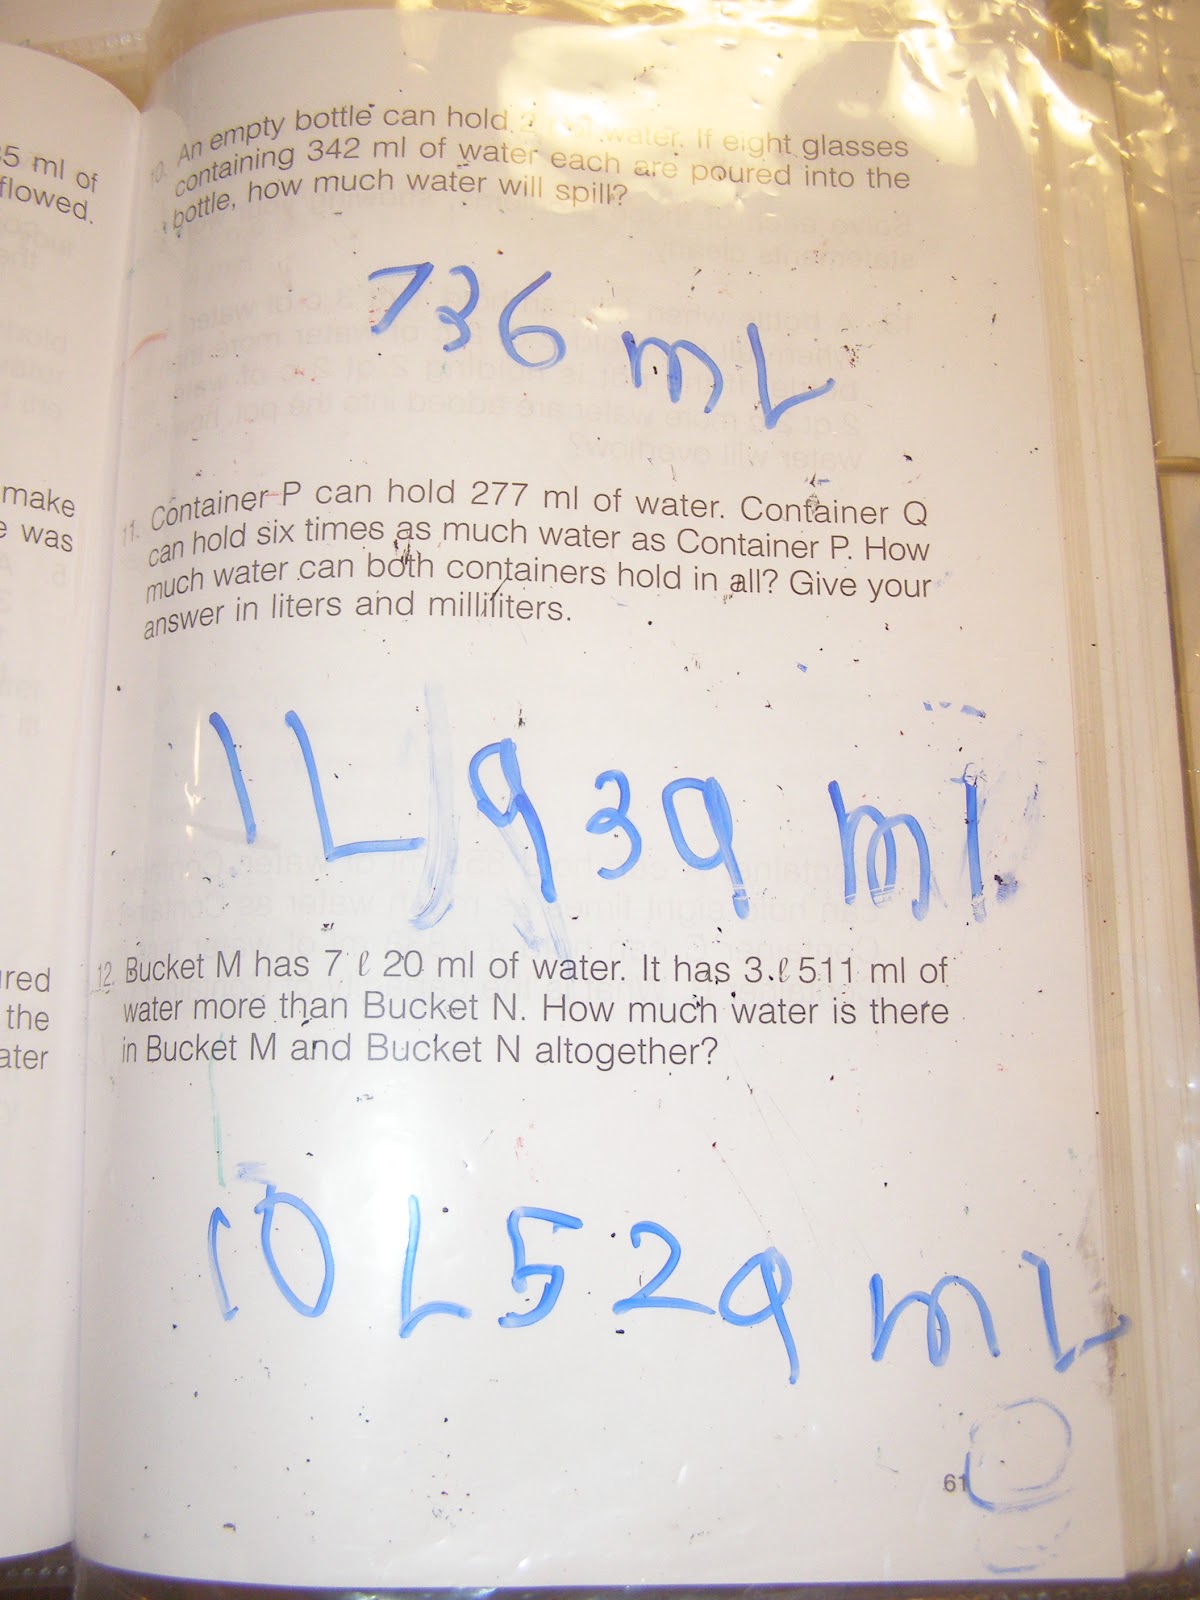 35 ml of
flowed.
make
e was
ured
the
ater
10. An empty bottle can hold 2 l of water. If eight glasses
containing 342 ml of water each are poured into the
bottle, how much water will spill?
736 mL
11. Container P can hold 277 ml of water. Container Q
can hold six times as much water as Container P. How
much water can both containers hold in all? Give your
answer in liters and milliliters.
1L 939 ml
12. Bucket M has 7 ℓ 20 ml of water. It has 3 ℓ 511 ml of
water more than Bucket N. How much water is there
in Bucket M and Bucket N altogether?
10 L 529 mL
61